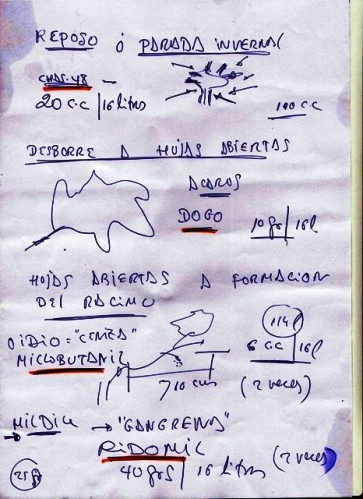 REPOSO ó PARADA INVERNAL
20 C.C | 16 litros
100 C.C
DESBORRE A HOJAS ABIERTAS
ACAROS
DOGO
10 grs | 16 l
HOJAS ABIERTAS A FORMACION
DEL RACIMO
OIDIO = "CENIZA"
MICLOBUTANIL
1/4 l
6 CC | 16 l
710 cms
(2 veces)
MILDIU → "GANGRENA"
RIDOMIL
(2 veces)
40 grs | 16 litros